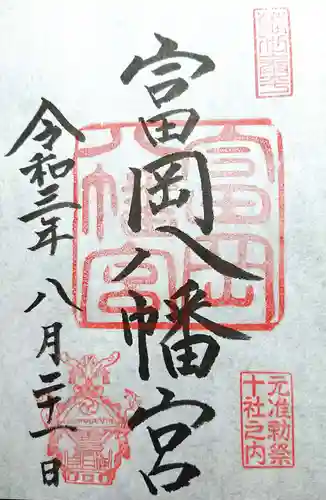 富岡八幡宮
令和三年 八月二十一日
富岡八幡宮
元准勅祭
十社之内